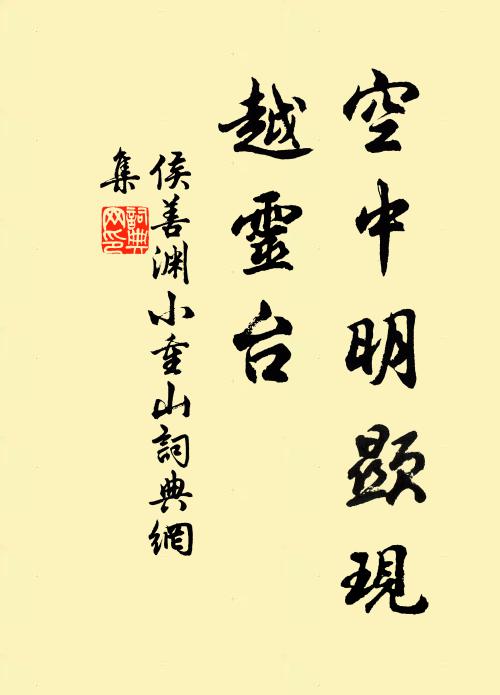 空中明顯現
越靈台
侯善渊小重山詞典網
集
詞典网印